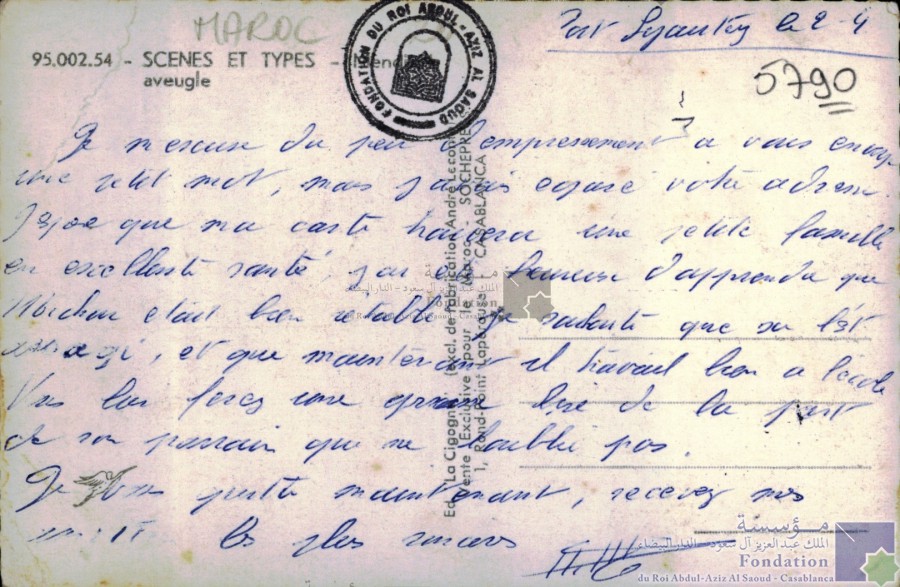 MAROC
Port Lyautey le 2-4
95.002.54 - SCENES ET TYPES -
aveugle
FONDATION DU ROI ABDUL-AZIZ AL SAOUD
5790
Je m'excuse du peu d'empressement a vous envoyer
une petit mot, mais j'avais egaré votre adresse
J'espere que ma carte trouvera une petite famille
en excellente santé. j'ai été heureuse d'apprendre que
était bien rétabli. Je souhaite que sa s'est
et que maintenant il travail bien a l'école
Vous lui ferez une grosse bise de la part
de son parrain qui ne l'oublie pas.
Je vous quitte maintenant, recevez mes
les plus sincères
Editions La Cigogne (excl. de fabrication André
Vente Exclusive pour le Maroc - SOCHEPRESS
1, Rond-Point Lapérouse - CASABLANCA
مؤسسة
الملك عبد العزيز آل سعود - الدار البيضاء
Fondation
du Roi Abdul-Aziz Al Saoud - Casablanca
مؤسسة
الملك عبد العزيز آل سعود - الدار البيضاء
Fondation
du Roi Abdul-Aziz Al Saoud - Casablanca